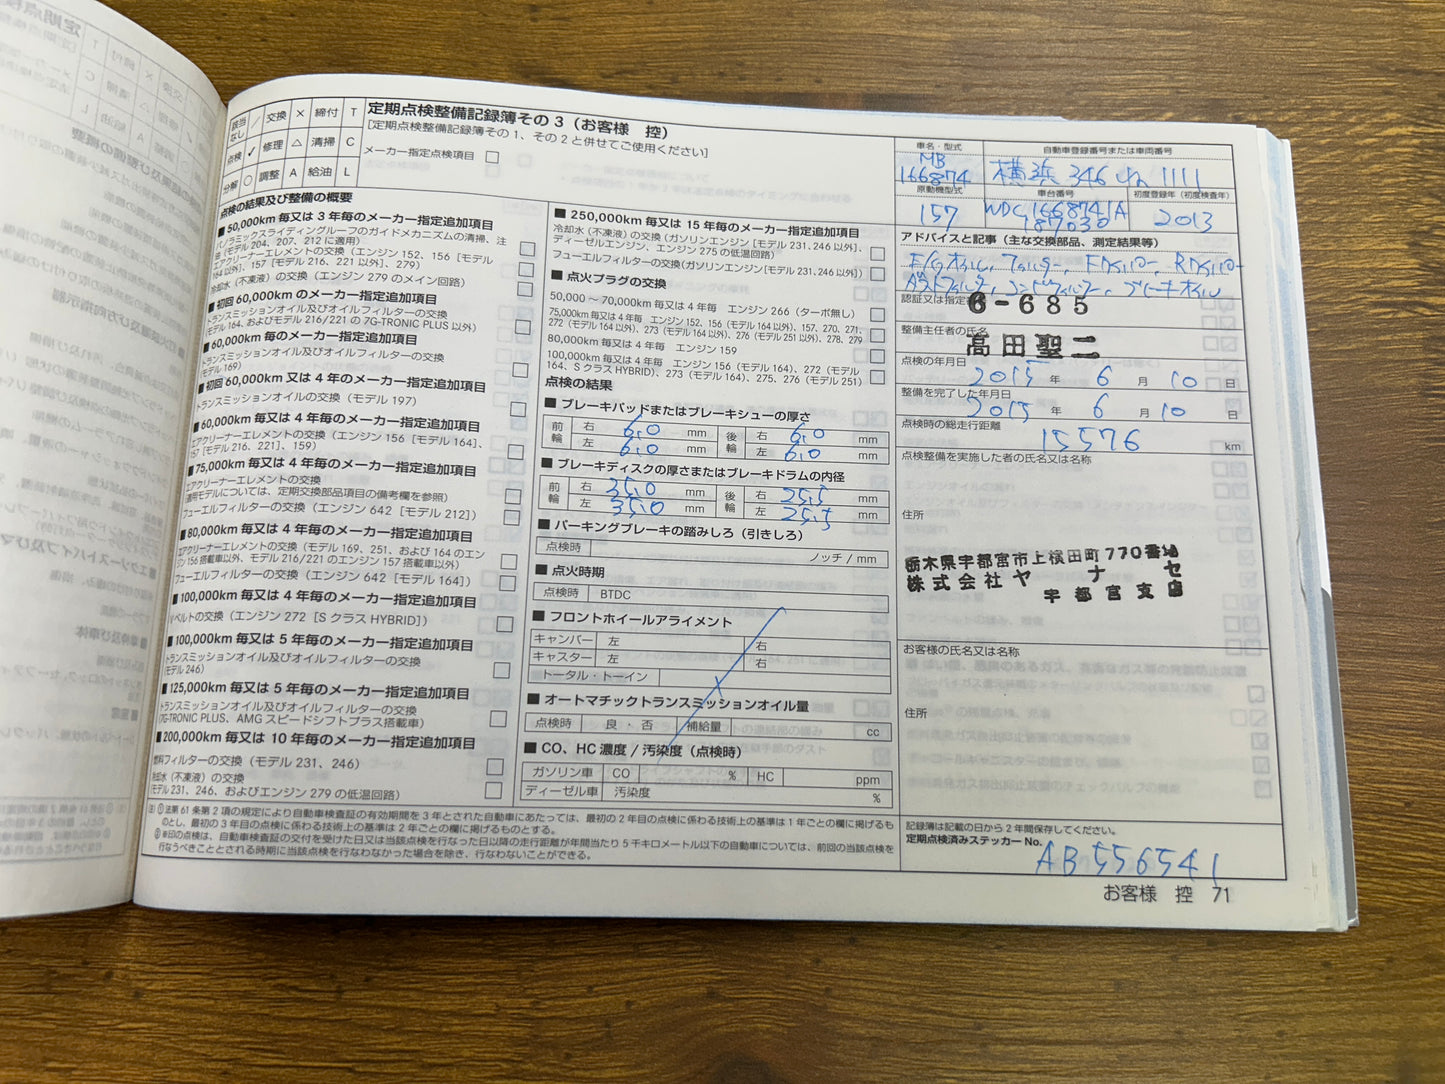 該当なし ／ 交換 × 締付 T
点検 ✓ 修理 △ 清掃 C
分解 ○ 調整 A 給油 L
定期点検整備記録簿その3（お客様 控）
［定期点検整備記録簿その1、その2と併せてご使用ください］
メーカー指定点検項目
点検の結果及び整備の概要
■50,000km 毎又は 3 年毎のメーカー指定追加項目
パノラミックスライディングルーフのガイドメカニズムの清掃、注
油（モデル 204、207、212 に適用）
エアクリーナーエレメントの交換（エンジン 152、156［モデル
164 以外］、157［モデル 216、221 以外］、279）
冷却水（不凍液）の交換（エンジン 279 のメイン回路）
■初回 60,000km のメーカー指定追加項目
トランスミッションオイル及びオイルフィルターの交換
（モデル 164、およびモデル 216/221 の 7G-TRONIC PLUS 以外）
■60,000km 毎のメーカー指定追加項目
トランスミッションオイル及びオイルフィルターの交換
（モデル 169）
■初回 60,000km 又は 4 年毎のメーカー指定追加項目
トランスミッションオイルの交換（モデル 197）
■60,000km 毎又は 4 年毎のメーカー指定追加項目
エアクリーナーエレメントの交換（エンジン 156［モデル 164］、
157［モデル 216、221］、159）
■75,000km 毎又は 4 年毎のメーカー指定追加項目
エアクリーナーエレメントの交換
（適用モデルについては、定期交換部品項目の備考欄を参照）
フューエルフィルターの交換（エンジン 642［モデル 212］）
■80,000km 毎又は 4 年毎のメーカー指定追加項目
エアクリーナーエレメントの交換（モデル 169、251、および 164 のエン
ジン 156 搭載車以外、モデル 216/221 のエンジン 157 搭載車以外）
フューエルフィルターの交換（エンジン 642［モデル 164］）
■100,000km 毎又は 4 年毎のメーカー指定追加項目
Vベルトの交換（エンジン 272［S クラス HYBRID］）
■100,000km 毎又は 5 年毎のメーカー指定追加項目
トランスミッションオイル及びオイルフィルターの交換
（モデル 246）
■125,000km 毎又は 5 年毎のメーカー指定追加項目
トランスミッションオイル及びオイルフィルターの交換
（7G-TRONIC PLUS、AMG スピードシフトプラス搭載車）
■200,000km 毎又は 10 年毎のメーカー指定追加項目
燃料フィルターの交換（モデル 231、246）
冷却水（不凍液）の交換
（モデル 231、246、およびエンジン 279 の低温回路）
■250,000km 毎又は 15 年毎のメーカー指定追加項目
冷却水（不凍液）の交換（ガソリンエンジン［モデル 231、246 以外］、
ディーゼルエンジン、エンジン 275 の低温回路）
フューエルフィルターの交換（ガソリンエンジン［モデル 231、246 以外］）
■点火プラグの交換
50,000 ～ 70,000km 毎又は 4 年毎 エンジン 266（ターボ無し）
75,000km 毎又は 4 年毎 エンジン 152、156（モデル 164 以外）、157、270、271、
272（モデル 164 以外）、273（モデル 164 以外）、276（モデル 251 以外）、278、279
80,000km 毎又は 4 年毎 エンジン 159
100,000km 毎又は 4 年毎 エンジン 156（モデル 164）、272（モデル
164、S クラス HYBRID）、273（モデル 164）、275、276（モデル 251）
点検の結果
■ブレーキパッドまたはブレーキシューの厚さ
前輪 右 6.0 mm 後輪 右 6.0 mm
左 6.0 mm 左 6.0 mm
■ブレーキディスクの厚さまたはブレーキドラムの内径
前輪 右 35.0 mm 後輪 右 25.5 mm
左 35.0 mm 左 25.5 mm
■パーキングブレーキの踏みしろ（引きしろ）
点検時 ノッチ / mm
■点火時期
点検時 BTDC
■フロントホイールアライメント
キャンバー 左 右
キャスター 左 右
トータル・トーイン
■オートマチックトランスミッションオイル量
点検時 良・否 補給量 cc
■CO、HC 濃度 / 汚染度（点検時）
ガソリン車 CO % HC ppm
ディーゼル車 汚染度 %
注）①法第 61 条第 2 項の規定により自動車検査証の有効期間を 3 年とされた自動車にあたっては、最初の 2 年目の点検に係わる技術上の基準は 1 年ごとの欄に掲げるも
のとし、最初の 3 年目の点検に係わる技術上の基準は 2 年ごとの欄に掲げるものとする。
②※印の点検は、自動車検査証の交付を受けた日又は当該点検を行なった日以降の走行距離が年間当たり 5 千キロメートル以下の自動車については、前回の当該点検を
行なうべきこととされる時期に当該点検を行なわなかった場合を除き、行なわないことができる。
車名・型式 自動車登録番号または車両番号
MB
166874 横浜 346 れ 1111
原動機型式 車台番号 初度登録年（初度検査年）
157 WDC1668741A
187030 2013
アドバイスと記事（主な交換部品、測定結果等）
E/Gオイル、フィルター、Fワイパー、Rワイパー
ダストフィルタ、コンビフィルター、ブレーキオイル
認証又は指定 6-685
整備主任者の氏名
髙田聖二
点検の年月日
2015 年 6 月 10 日
整備を完了した年月日
2015 年 6 月 10 日
点検時の総走行距離
15576 km
点検整備を実施した者の氏名又は名称
住所
栃木県宇都宮市上横田町770番地
株式会社ヤナセ
宇都宮支店
お客様の氏名又は名称
住所
記録簿は記載の日から 2 年間保存してください。
定期点検済みステッカー No.
AB556541
お客様 控 71